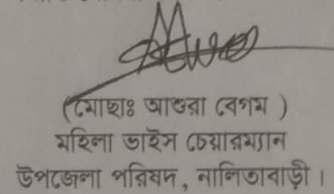 (মোছাঃ আশুরা বেগম )
মহিলা ভাইস চেয়ারম্যান
উপজেলা পরিষদ, নালিতাবাড়ী।